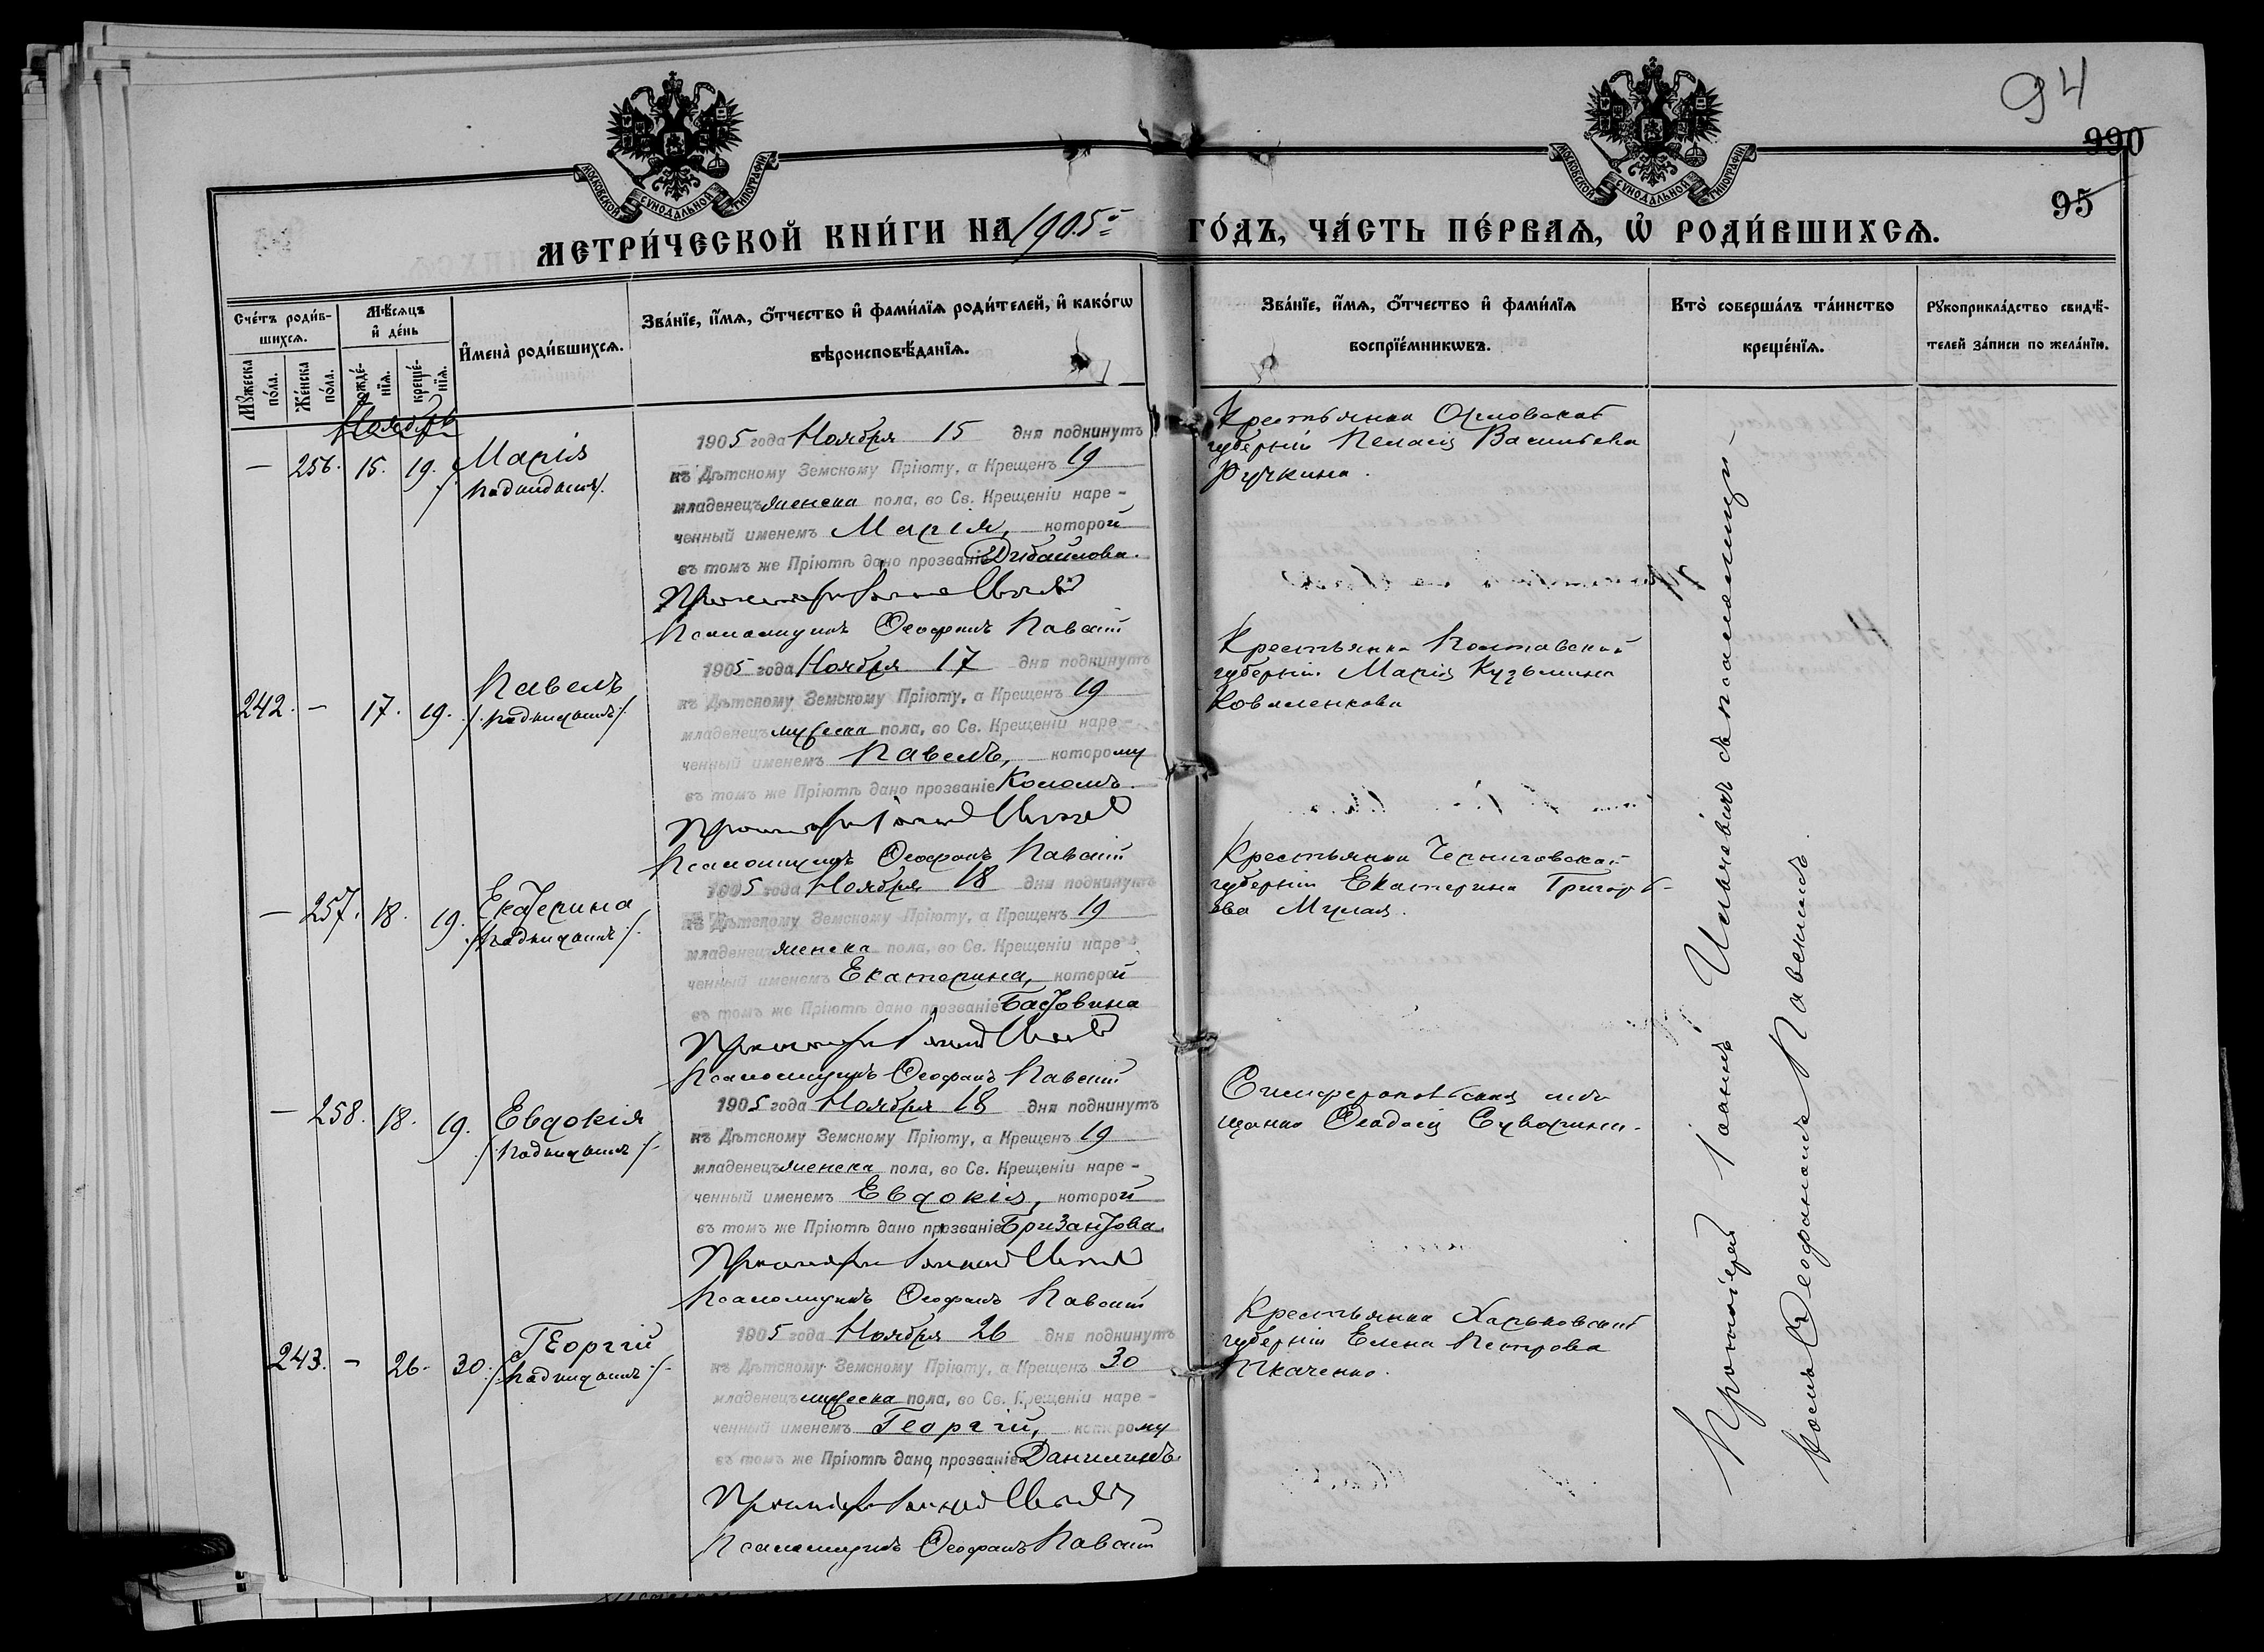 94
990
95
МОСКОВСКОЙ СѴНОДАЛЬНОЙ ТИПОГРАФІИ
МОСКОВСКОЙ СѴНОДАЛЬНОЙ ТИПОГРАФІИ
МЕТРИ́ЧЕСКОЙ КНИ́ГИ НА 1905 ГО́ДЪ, ЧА́СТЬ ПЕ́РВАѦ, Ѡ҆ РОДИ́ВШИХСѦ.
Сче́тъ роди́в-
шихсѧ.
Мꙋ́жеска по́ла.
Же́нска по́ла.
Мѣ́сѧцъ
и҆ де́нь
рожде́-
нїѧ.
креще́-
нїѧ.
И҆мена̀ роди́вшихсѧ.
Зва́нїе, и҆́мѧ, ѻ҆́тчество и҆ фами́лїѧ роди́телей, и҆ како́гѡ
вѣроисповѣ́данїѧ.
Зва́нїе, и҆́мѧ, ѻ҆́тчество и҆ фами́лїѧ
воспрїе́мникѡвъ.
Кто̀ соверша́лъ та́инство
креще́нїѧ.
Рꙋкоприкла́дство свидѣ́-
телей за́писи по жела́нїю.
Ноябрь
— 256. 15. 19. Марія
/подкидышъ/.
1905 года Ноября 15 дня подкинутъ
къ Дѣтскому Земскому Пріюту, а Крещенъ 19
младенецъ женска пола, во Св. Крещеніи наре-
ченный именемъ Марія, которой
въ томъ же Пріютѣ дано прозваніе
Протоіерей Іоаннъ
Псаломщикъ Ѳеофанъ Павскій
Крестьянка Орловской
губерніи Пелагія Васильева
Ручкина.
242. — 17. 19. Павелъ
/подкидышъ/.
1905 года Ноября 17 дня подкинутъ
къ Дѣтскому Земскому Пріюту, а Крещенъ 19
младенецъ мужеска пола, во Св. Крещеніи наре-
ченный именемъ Павелъ, которому
въ томъ же Пріютѣ дано прозваніе
Протоіерей Іоаннъ
Псаломщикъ Ѳеофанъ Павскій
Крестьянка Полтавской
губерніи Марія Кузьмина
Коваленкова
— 257. 18. 19. Екатерина
/подкидышъ/.
1905 года Ноября 18 дня подкинутъ
къ Дѣтскому Земскому Пріюту, а Крещенъ 19
младенецъ женска пола, во Св. Крещеніи наре-
ченный именемъ Екатерина, которой
въ томъ же Пріютѣ дано прозваніе Бастовина
Протоіерей Іоаннъ
Псаломщикъ Ѳеофанъ Павскій
Крестьянка Черниговской
губерніи Екатерина Григорь-
ева
— 258. 18. 19. Евдокія
/подкидышъ/.
1905 года Ноября 18 дня подкинутъ
къ Дѣтскому Земскому Пріюту, а Крещенъ 19
младенецъ женска пола, во Св. Крещеніи наре-
ченный именемъ Евдокія, которой
въ томъ же Пріютѣ дано прозваніе Бризантова.
Протоіерей Іоаннъ
Псаломщикъ Ѳеофанъ Павскій
Симферопольская мѣ-
щанка Ѳеодосія
243. — 26. 30. Георгій
/подкидышъ/.
1905 года Ноября 26 дня подкинутъ
къ Дѣтскому Земскому Пріюту, а Крещенъ 30
младенецъ мужеска пола, во Св. Крещеніи наре-
ченный именемъ Георгій, которому
въ томъ же Пріютѣ дано прозваніе Данилинъ.
Протоіерей Іоаннъ
Псаломщикъ Ѳеофанъ Павскій
Крестьянка Харьковской
губерніи Елена Петрова
Ткаченко.
Протоіерей Іоаннъ съ псаломщи-
комъ Ѳеофаномъ Павскимъ.